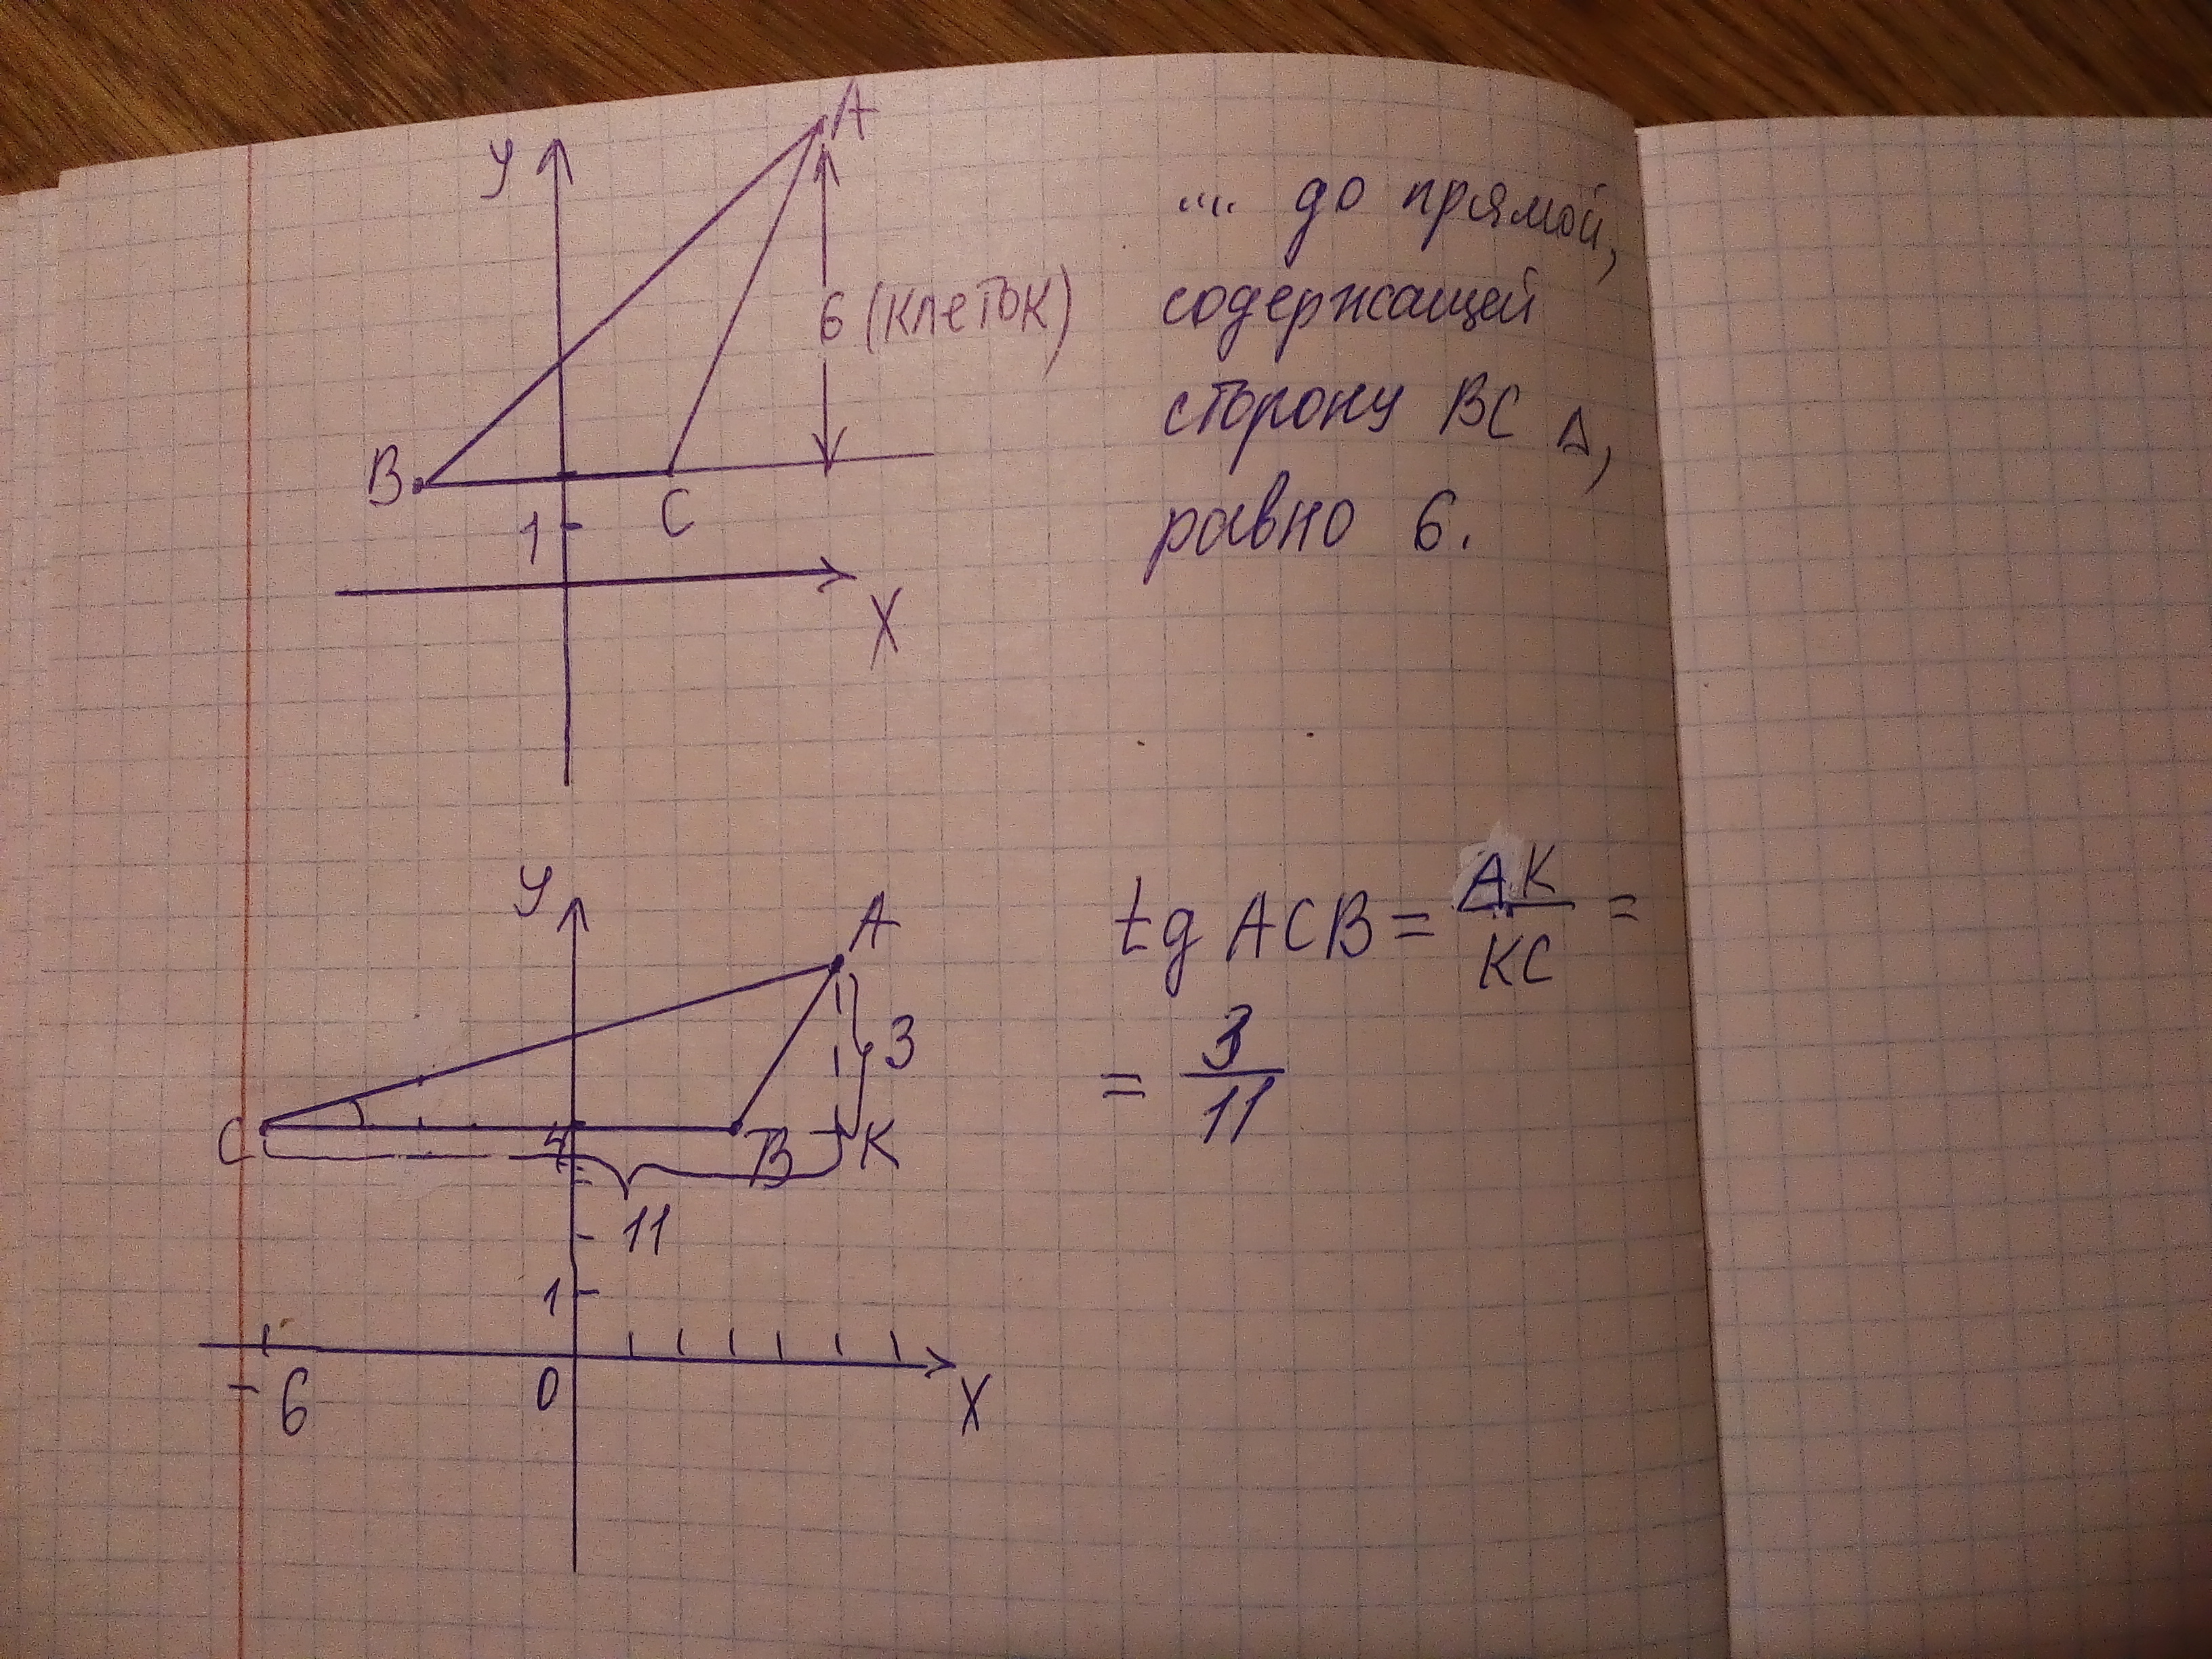 A
y
6 (клеток)
B
C
1
X
.... до прямой,
содержащей
сторону BC Δ,
равно 6.
y
A
3
C
4
B
K
11
1
-6
0
X
tg ACB = AK/KC =
= 3/11